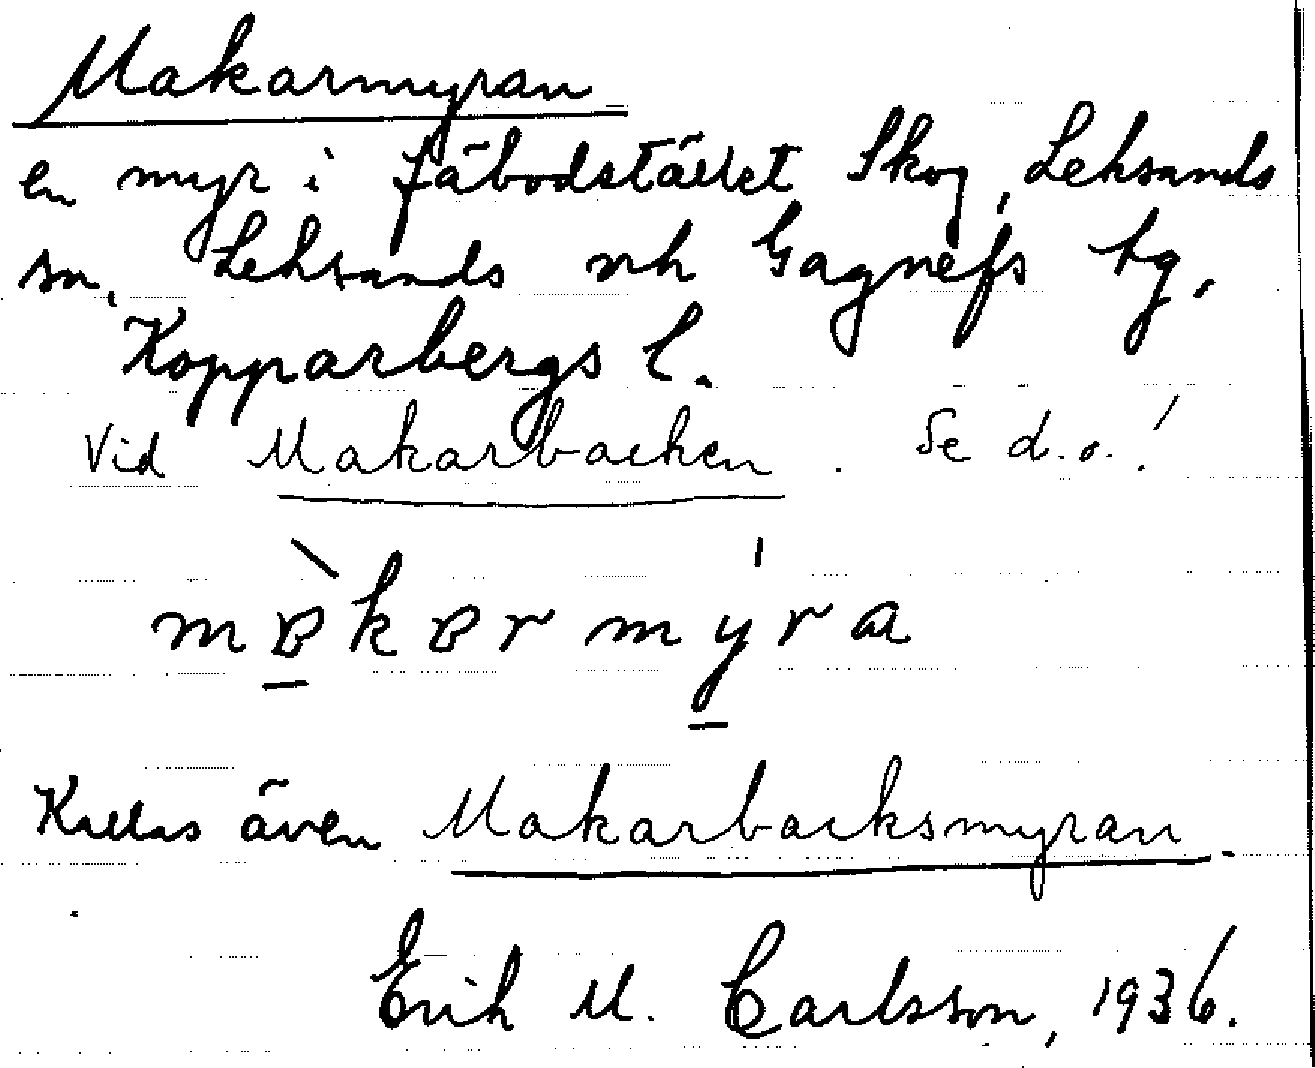 Makarmyran
en myr i fäbodstället Skog, Leksands
sn, Leksands och Gagnefs tg,
Kopparbergs l.
Vid Makarbacken. Se d.o.!
mɐ̀kɐr mýra
Kallas även Makarbacksmyran.
Erik M. Carlsson, 1936.